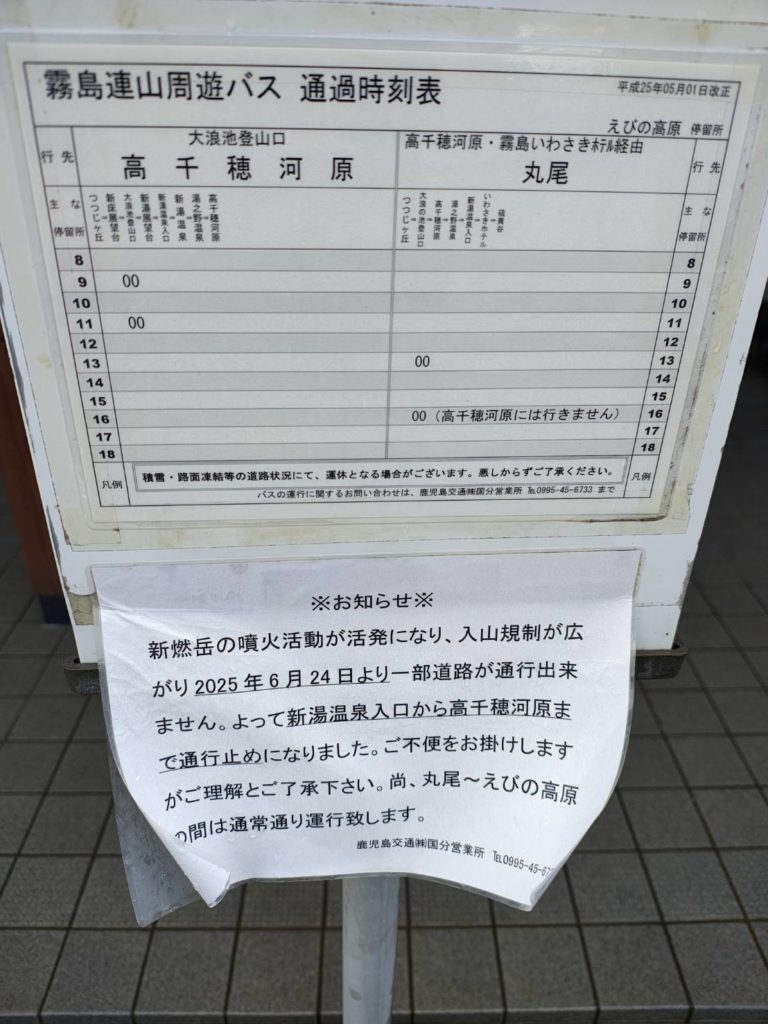 霧島連山周遊バス 通過時刻表
平成25年05月01日改正
えびの高原 停留所
行先 大浪池登山口 高千穂河原・霧島いわさきホテル経由 行先
高千穂河原 丸尾
主な停留所 つつじヶ丘⇒新床展望台⇒大浪池登山口⇒新湯展望台⇒新湯温泉入口⇒新湯温泉⇒湯之野温泉⇒高千穂河原 つつじヶ丘⇒大浪の池登山口⇒高千穂河原⇒湯之野温泉⇒新湯温泉入口⇒いわさきホテル⇒硫黄谷 主な停留所
8 8
9 00 9
10 10
11 00 11
12 12
13 00 13
14 14
15 15
16 00(高千穂河原には行きません) 16
17 17
18 18
凡例 積雪・路面凍結等の道路状況にて、運休となる場合がございます。悪しからずご了承ください。 凡例
バスの運行に関するお問い合わせは、鹿児島交通㈱国分営業所 ℡0995-45-6733 まで
※お知らせ※
新燃岳の噴火活動が活発になり、入山規制が広
がり 2025 年 6 月 24 日より一部道路が通行出来
ません。よって新湯温泉入口から高千穂河原ま
で通行止めになりました。ご不便をお掛けします
がご理解とご了承下さい。尚、丸尾～えびの高原
の間は通常通り運行致します。
鹿児島交通㈱国分営業所 ℡0995-45-67